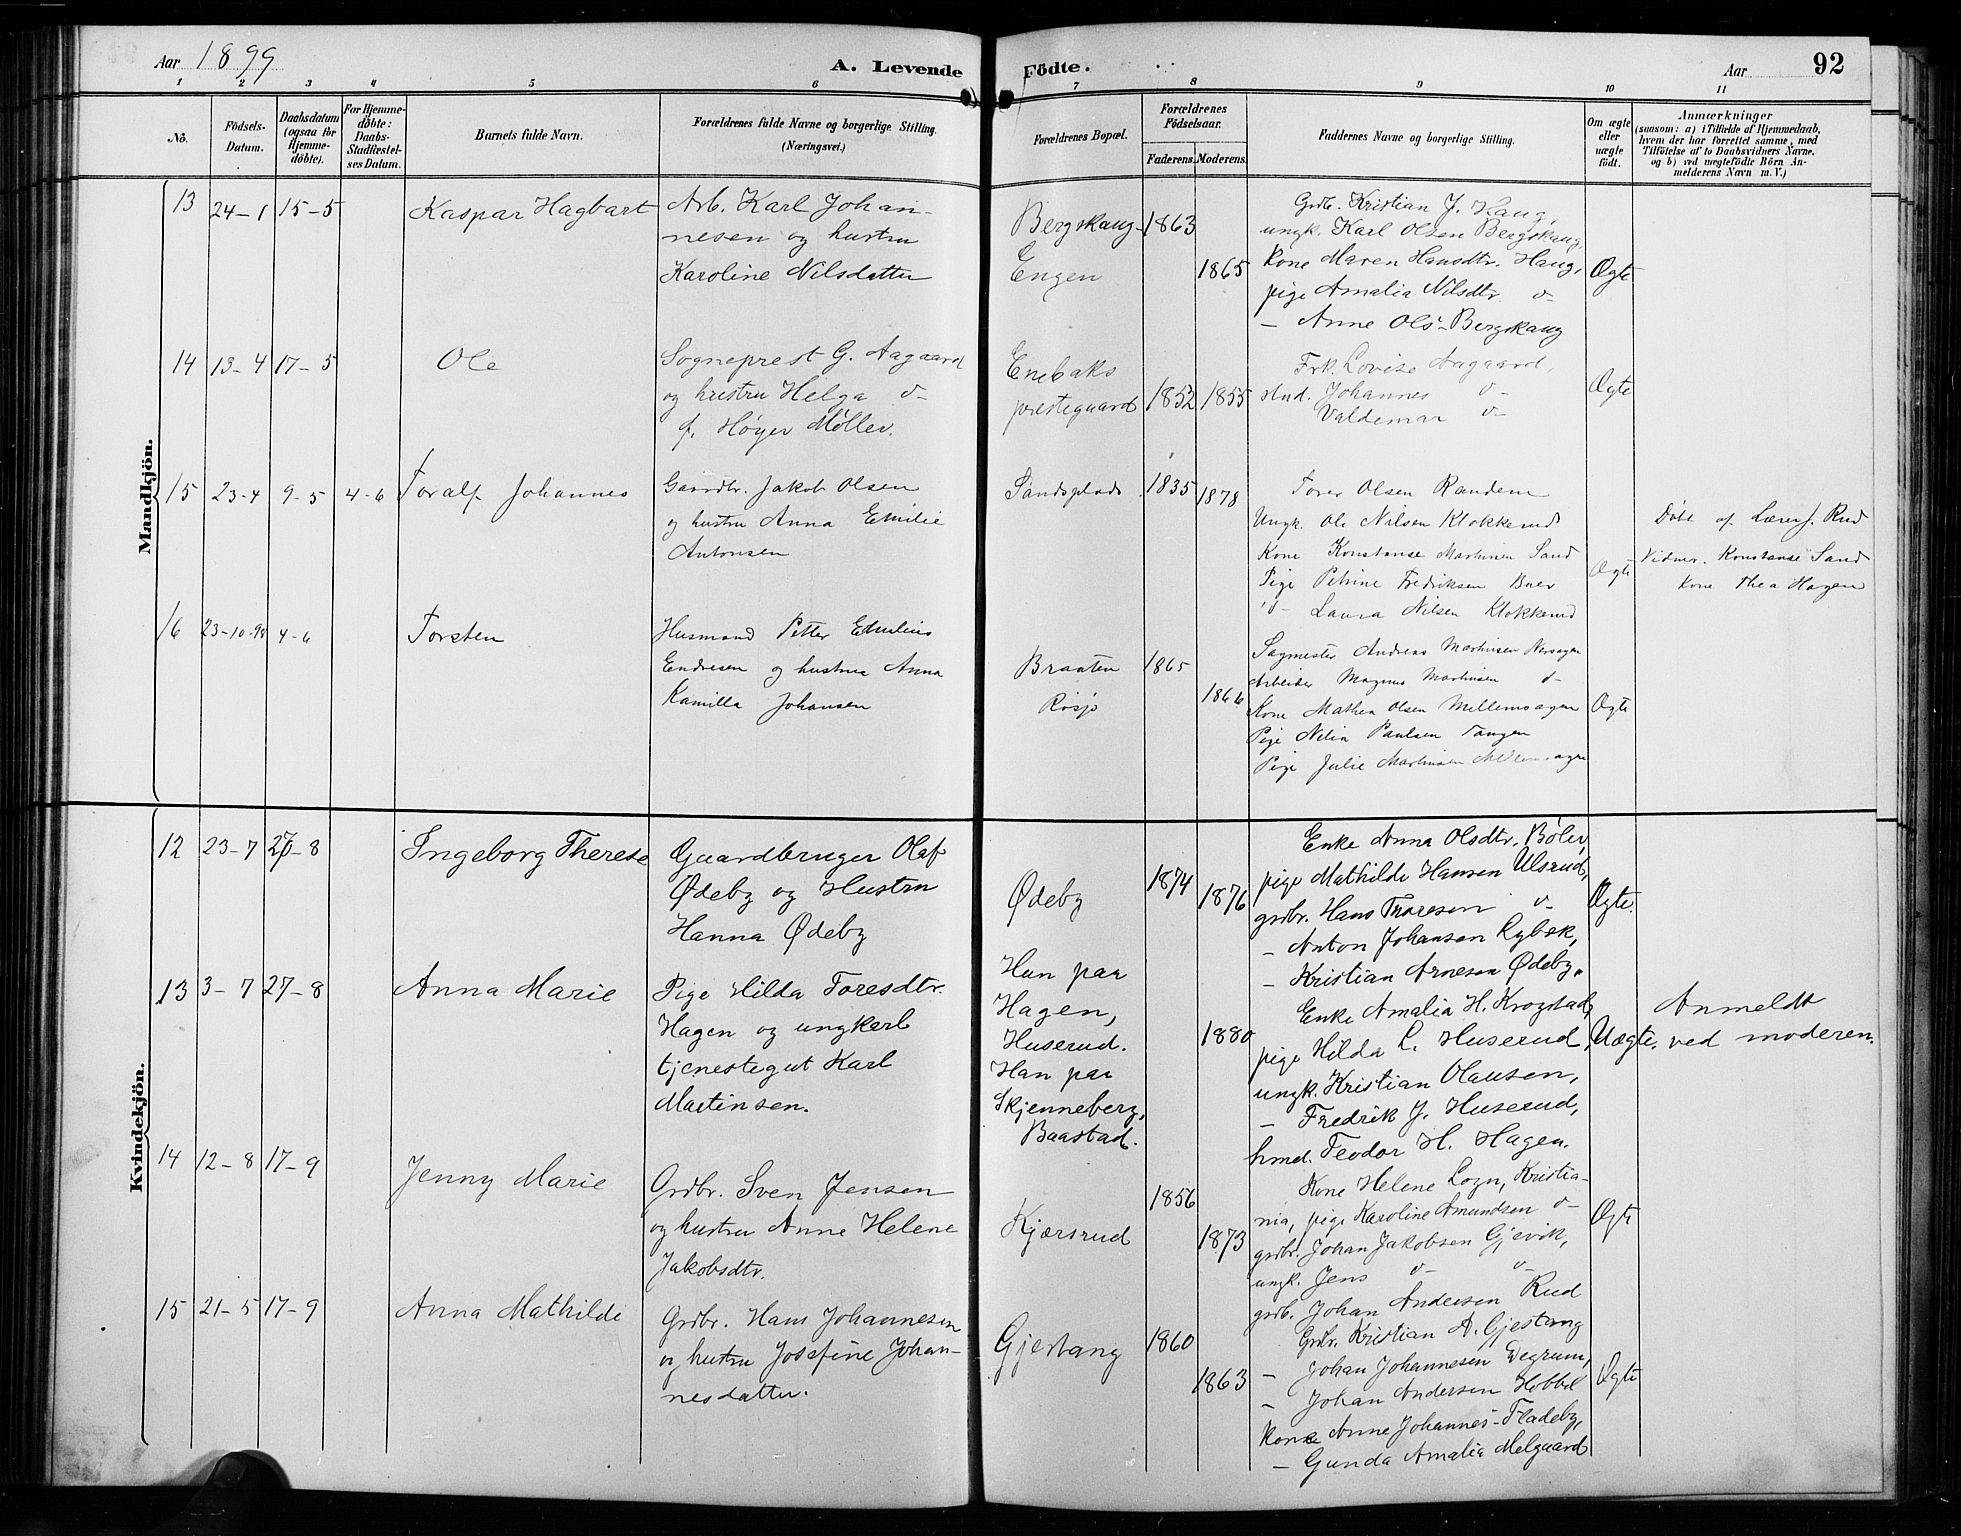 Aar 1899
A. Levende Födte.
Aar
92
1 2 3 4 5 6 7 8 9 10 11
No.
Födsels-Datum.
Daabsdatum (ogsaa for Hjemme-döbte).
For Hjemme-döbte: Daabs-Stadfæstel-ses Datum.
Barnets fulde Navn.
Forældrenes fulde Navne og borgerlige Stilling.
(Næringsvei.)
Forældrenes Bopæl.
Forældrenes Födselsaar.
Faderens. Moderens.
Faddernes Navne og borgerlige Stilling.
Om ægte eller uægte födt.
Anmærkninger
(saasom: a) i Tilfælde af Hjemmedaab,
hvem der har forrettet samme, med
Tilföielse af to Daabsvidners Navne.
og b) ved uægtefödte Börn An-
melderens Navn m. V.)
Mandkjön.
13 24-1 15-5 Kaspar Hagbart
Arb. Karl Johan-
nesen og hustru
Karoline Nilsdatter
Bergskaug-
Engen
1863 1865
Grdb. Kristian J. Haug,
ungk. Karl Olsen Bergskaug,
kone Maren Hansdtr. Haug,
pige Amalia Nilsdtr. d-
- Anne Ols- Bergskaug
Ægte
14 13-4 17-5 Ole
Sogneprest G. Aagaard
og hustru Helga d-
f. Høyer Møller.
Enebaks
prestegaard
1852 1855
Frk. Lovise Aagaard,
stud. Johannes d-
Valdemar d-
Ægte
15 23-4 9-5 4-6 Toralf Johannes
Gaardbr. Jakob Olsen
og hustru Anna Emilie
Antonsen
Sandsplads
1835 1878
Torer Olsen Randem
Ungk. Ole Nilsen Klokkerud
Kone Konstanse Martinsen Sand
Pige Petrine Fredriksen Buer
d- Laura Nilsen Klokkerud
Ægte
Døbt af Lærer J. Rud
Vidner. Konstanse Sand
Kone Thea Hagen
16 23-10-98 4-6 Torsten
Husmand Petter Emilius
Endresen og hustru Anna
Kamilla Johansen
Braaten
Røsjø
1865 1866
Sagmester Andreas Martinsen Nersagen
Arbeider Magnus Martinsen d-
Kone Mathea Olsen Mellemsagen
Pige Nilia Paulsen Tangen
Pige Julie Martinsen Mellemsagen
Ægte
Kvindekjön.
12 23-7 27-8 Ingeborg Therese
Gaardbruger Olaf
Ødeby og Hustru
Hanna Ødeby
Ødeby
1874 1876
Enke Anna Olsdtr. Bøler,
pige Mathilde Hansen Ulsrud,
grdbr. Hans Thoresen d-
- Anton Johansen Rybæk,
- Kristian Arnesen Ødeby.
Ægte.
13 3-7 27-8 Anna Marie
Pige Hilda Toresdtr.
Hagen og ungkarl
tjenestegut Karl
Martinsen.
Hun paa
Hagen,
Huserud.
Han paa
Skjenneberg,
Baastad.
1880
Enke Amalia H. Krogstad,
pige Hilda L. Huserud,
ungk. Kristian Olausen,
- Fredrik J. Huserud,
hmd. Teodor H. Hagen.
Uægte.
Anmeldt
ved moderen.
14 12-8 17-9 Jenny Marie
Grdbr. Sven Jensen
og hustru Anne Helene
Jakobsdtr.
Kjærsrud
1856 1873
Kone Helene Logn, Kristia-
nia, pige Karoline Amundsen d-
grdbr. Johan Jakobsen Gjevik,
ungk. Jens d- d-
grdb. Johan Andersen Rud
Ægte
15 21-5 17-9 Anna Mathilde
Grdbr. Hans Johannesen
og hustru Josefine Johan-
nesdatter.
Gjestang
1860 1863
Grdbr. Kristian A. Gjestang
- Johan Johannesen Degrum,
- Johan Andersen Hobbel
kone Anne Johannes- Fladeby,
- Gunda Amalia Melgaard
Ægte